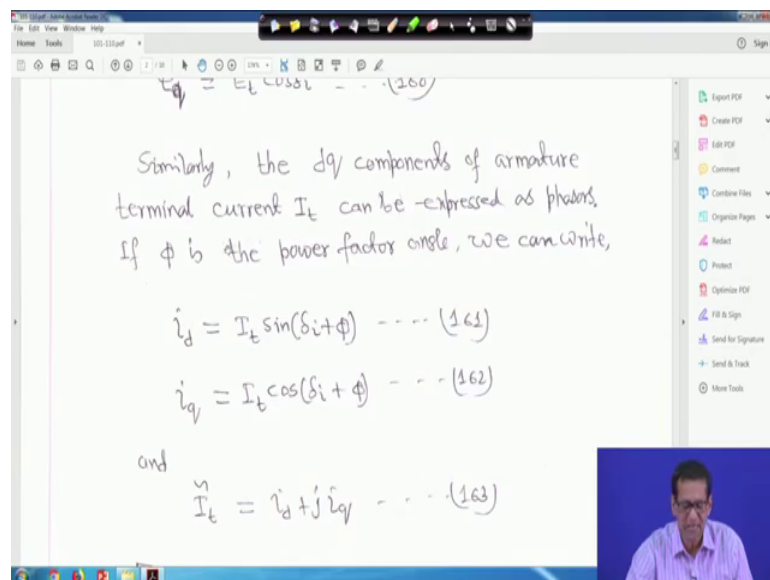 101-110.pdf - Adobe Acrobat Reader DC
File Edit View Window Help
Home Tools 101-110.pdf × Sign
e_q = E_t cosδi - -- (160)
Similarly, the dq components of armature
terminal current I_t can be expressed as phasors.
If ϕ is the power factor angle, we can write,
i_d = I_t sin(δi+ϕ) ---- (161)
i_q = I_t cos(δi + ϕ) --- (162)
and
Ĩ_t = i_d + j i_q ---- (163)
Export PDF
Create PDF
Edit PDF
Comment
Combine Files
Organize Pages
Redact
Protect
Optimize PDF
Fill & Sign
Send for Signature
Send & Track
More Tools